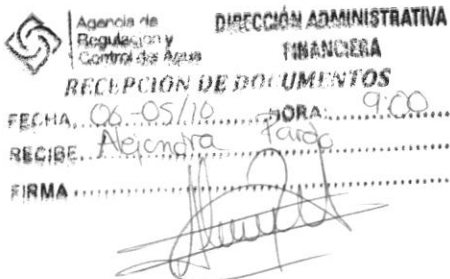 Agencia de
Regulación y
Control del Agua
DIRECCIÓN ADMINISTRATIVA
FINANCIERA
RECEPCIÓN DE DOCUMENTOS
FECHA. 06-05/10 HORA: 9:00
RECIBE. Alejandra Pardo
FIRMA